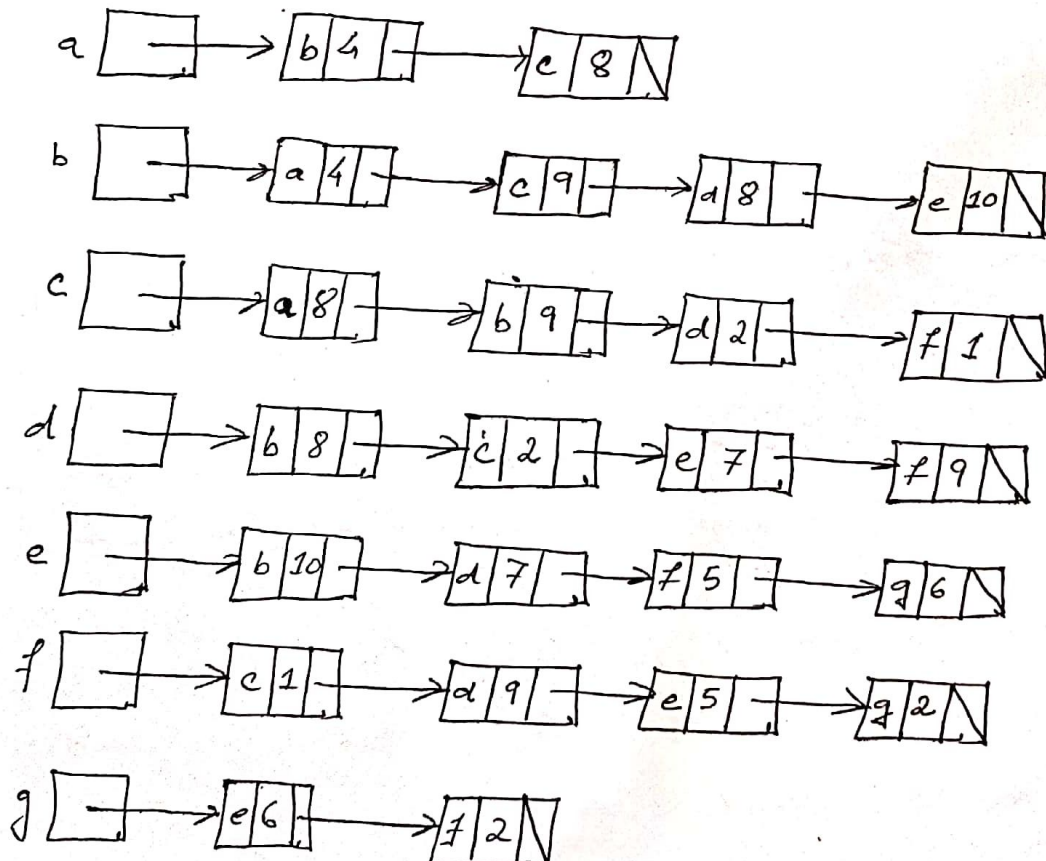 a b 4 c 8
b a 4 c 9 d 8 e 10
c a 8 b 9 d 2 f 1
d b 8 c 2 e 7 f 9
e b 10 d 7 f 5 g 6
f c 1 d 9 e 5 g 2
g e 6 f 2